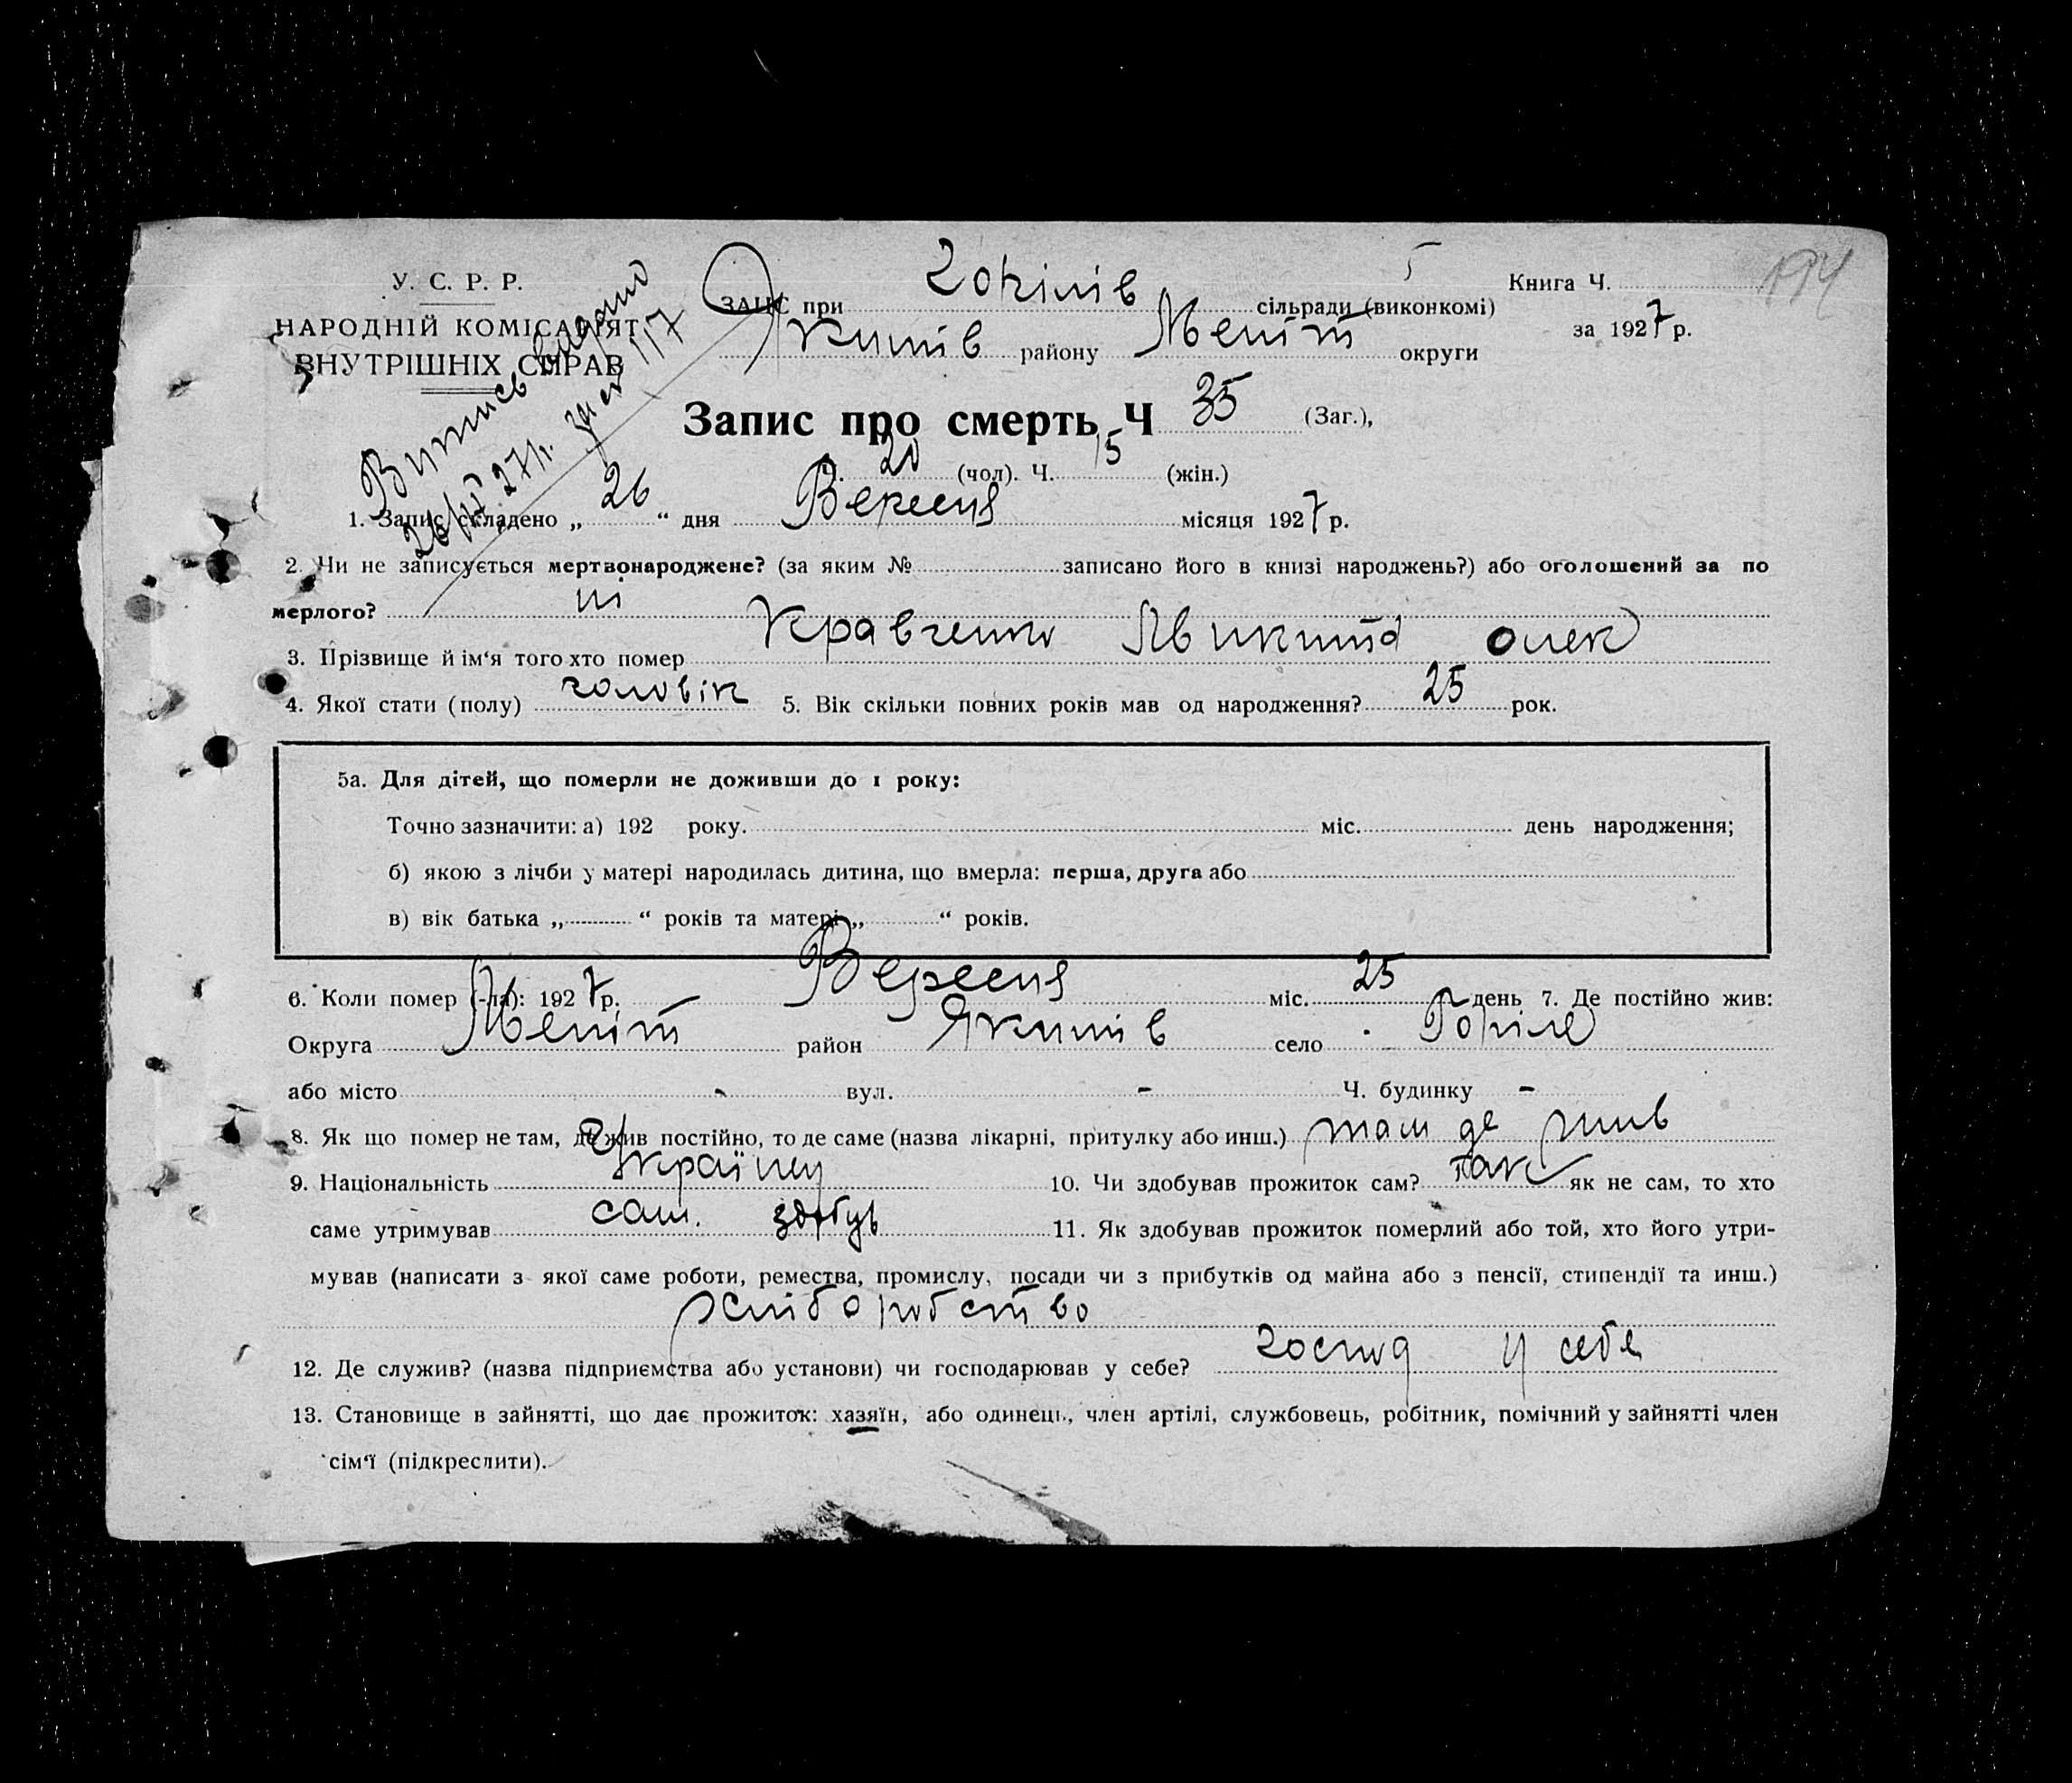 У. С. Р. Р.
НАРОДНІЙ КОМІСАРІЯТ
ВНУТРІШНІХ СПРАВ
Випись видано
26/IX 27 р. за № 117
ЗАПИС при Горілів сільради (виконкомі)
Якимів району Меліт округи
Книга Ч. 194
за 1927 р.
Запис про смерть Ч 35 (Заг.),
20 (чол). Ч. 15 (жін.)
1. Запис складено „ 26 “ дня Вересня місяця 1927 р.
2. Чи не записується мертвонароджене? (за яким № записано його в книзі народжень?) або оголошений за по
мерлого? ні
3. Прізвище й ім‘я того хто помер Кравченко Микита Олек
4. Якої стати (полу) чоловік 5. Вік скільки повних років мав од народження? 25 рок.
5а. Для дітей, що померли не доживши до 1 року:
Точно зазначити: а) 192 року. міс. день народження;
б) якою з лічби у матері народилась дитина, що вмерла: перша, друга або
в) вік батька „ “ років та матері „ “ років.
6. Коли помер (-ла): 1927 р. Вересня міс. 25 день 7. Де постійно жив:
Округа Меліт район Якимів село Горіле
або місто - вул. - Ч. будинку -
8. Як що помер не там, де жив постійно, то де саме (назва лікарні, притулку або инш.) там де жив
9. Національність Українец 10. Чи здобував прожиток сам? так як не сам, то хто
саме утримував сам. здобув 11. Як здобував прожиток померлий або той, хто його утри-
мував (написати з якої саме роботи, ремества, промислу, посади чи з прибутків од майна або з пенсії, стипендії та инш.)
хліборобство
12. Де служив? (назва підприємства або установи) чи господарював у себе? господ у себе
13. Становище в зайнятті, що дає прожиток: хазяїн, або одинець, член артілі, службовець, робітник, помічний у зайнятті член
сім‘ї (підкреслити).